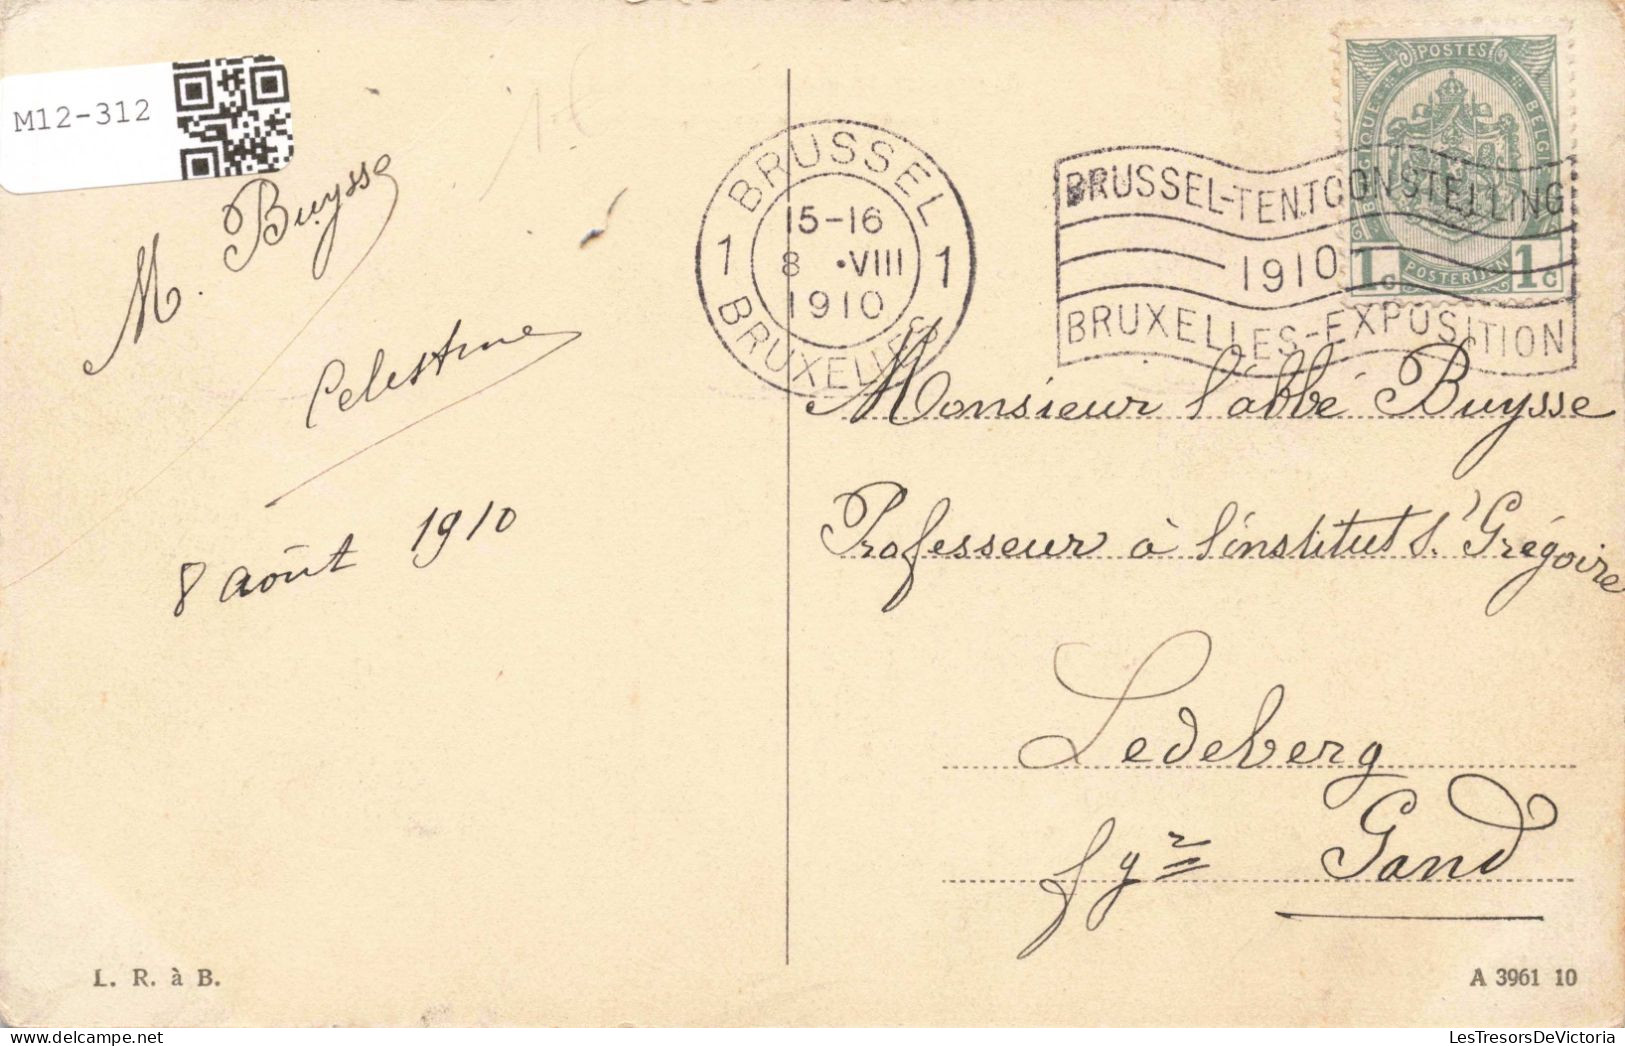 M12-312
M. Buysse
Celestine
8 août 1910
L. R. à B.
BRUSSEL
15-16
8 •VIII
1910
1 1
BRUXELLES
BRUSSEL-TENTOONSTELLING
1910
BRUXELLES-EXPOSITION
POSTES
BELGIQUE
BELGIE
POSTERIJEN
1c 1c
Monsieur l'abbé Buysse
Professeur à l'institut S. Grégoire
Ledeberg
Gand
A 3961 10
LesTresorsDeVictoria.com